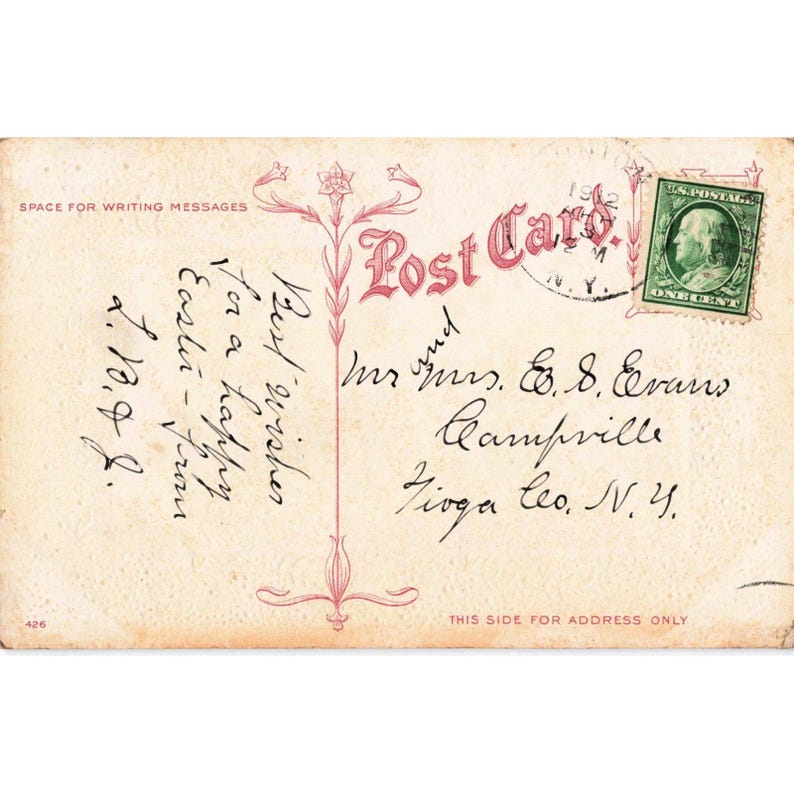 SPACE FOR WRITING MESSAGES
Post Card.
1912
12 M
N.Y.
U.S. POSTAGE
ONE CENT
Best wishes
for a happy
Easter - from
L. B. & J.
Mr and Mrs. E. S. Evans
Campville
Tioga Co. N. Y.
426
THIS SIDE FOR ADDRESS ONLY